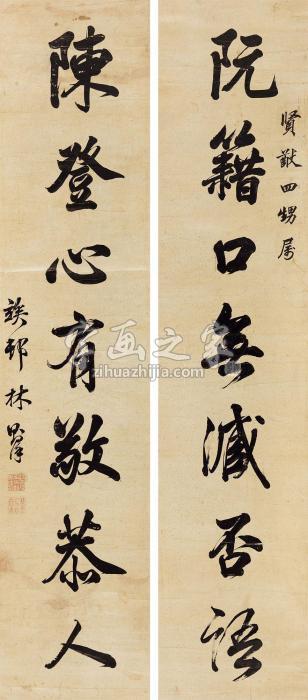 賢猷四甥屬
阮籍口無滅否語
陳登心有敬恭人
竢邨林
书画之家
zihuazhijia.com